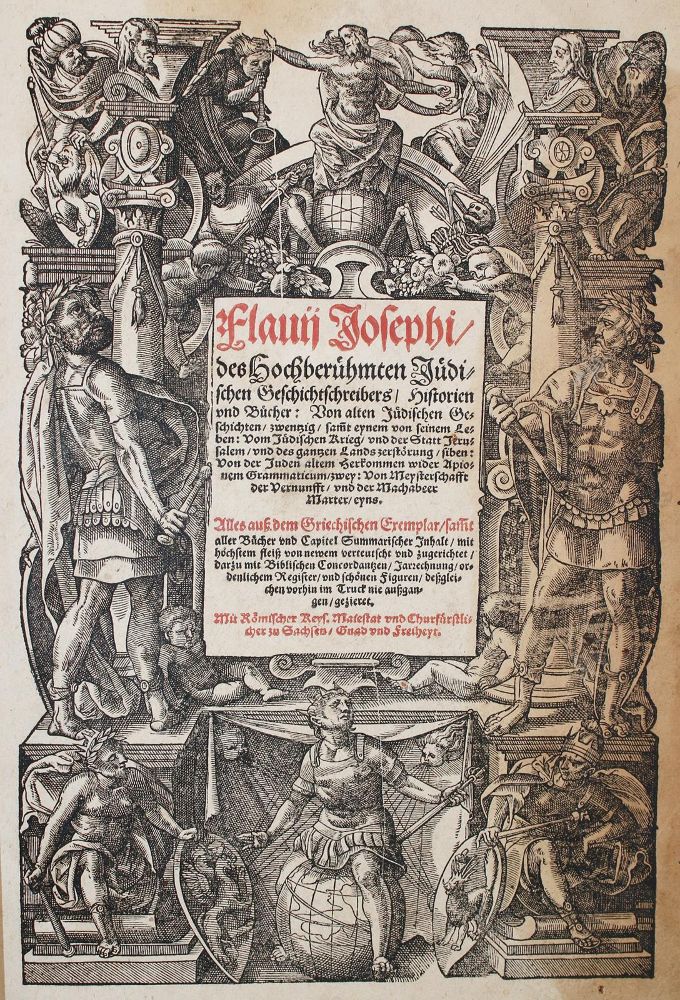 Flauij Josephi/
des Hochberühmten Jüdi⸗
schen Geschichtschreibers/ Historien
vnd Bücher: Von alten Jüdischen Ge⸗
schichten/ zwenzig/ sam̃t eynem von seinem Le⸗
ben: Vom Jüdischen Krieg/ vnd der Statt Jeru⸗
salem/ vnd des gantzen Lands zerstörung/ siben:
Von der Juden altem Herkommen wider Apio⸗
nem Grammaticum/ zwey: Von Meysterschafft
der Vernunfft/ vnd der Machabeer
Marter/ eyns.
Alles auß dem Griechischen Exemplar/ sam̃t
aller Bücher vnd Capitel Summarischer Inhalt/ mit
höchstem fleiß von newem verteutscht vnd zugerichtet/
darzu mit Biblischen Concordantzen/ Jarrechnung/ or⸗
denlichem Register/ vnd schönen Figuren/ deßglei⸗
chen vorhin im Truck nie außgan⸗
gen/ gezieret.
Mit Römischer Keys. Maiestat vnd Churfürstli⸗
cher zu Sachsen/ Gnad vnd Freiheyt.